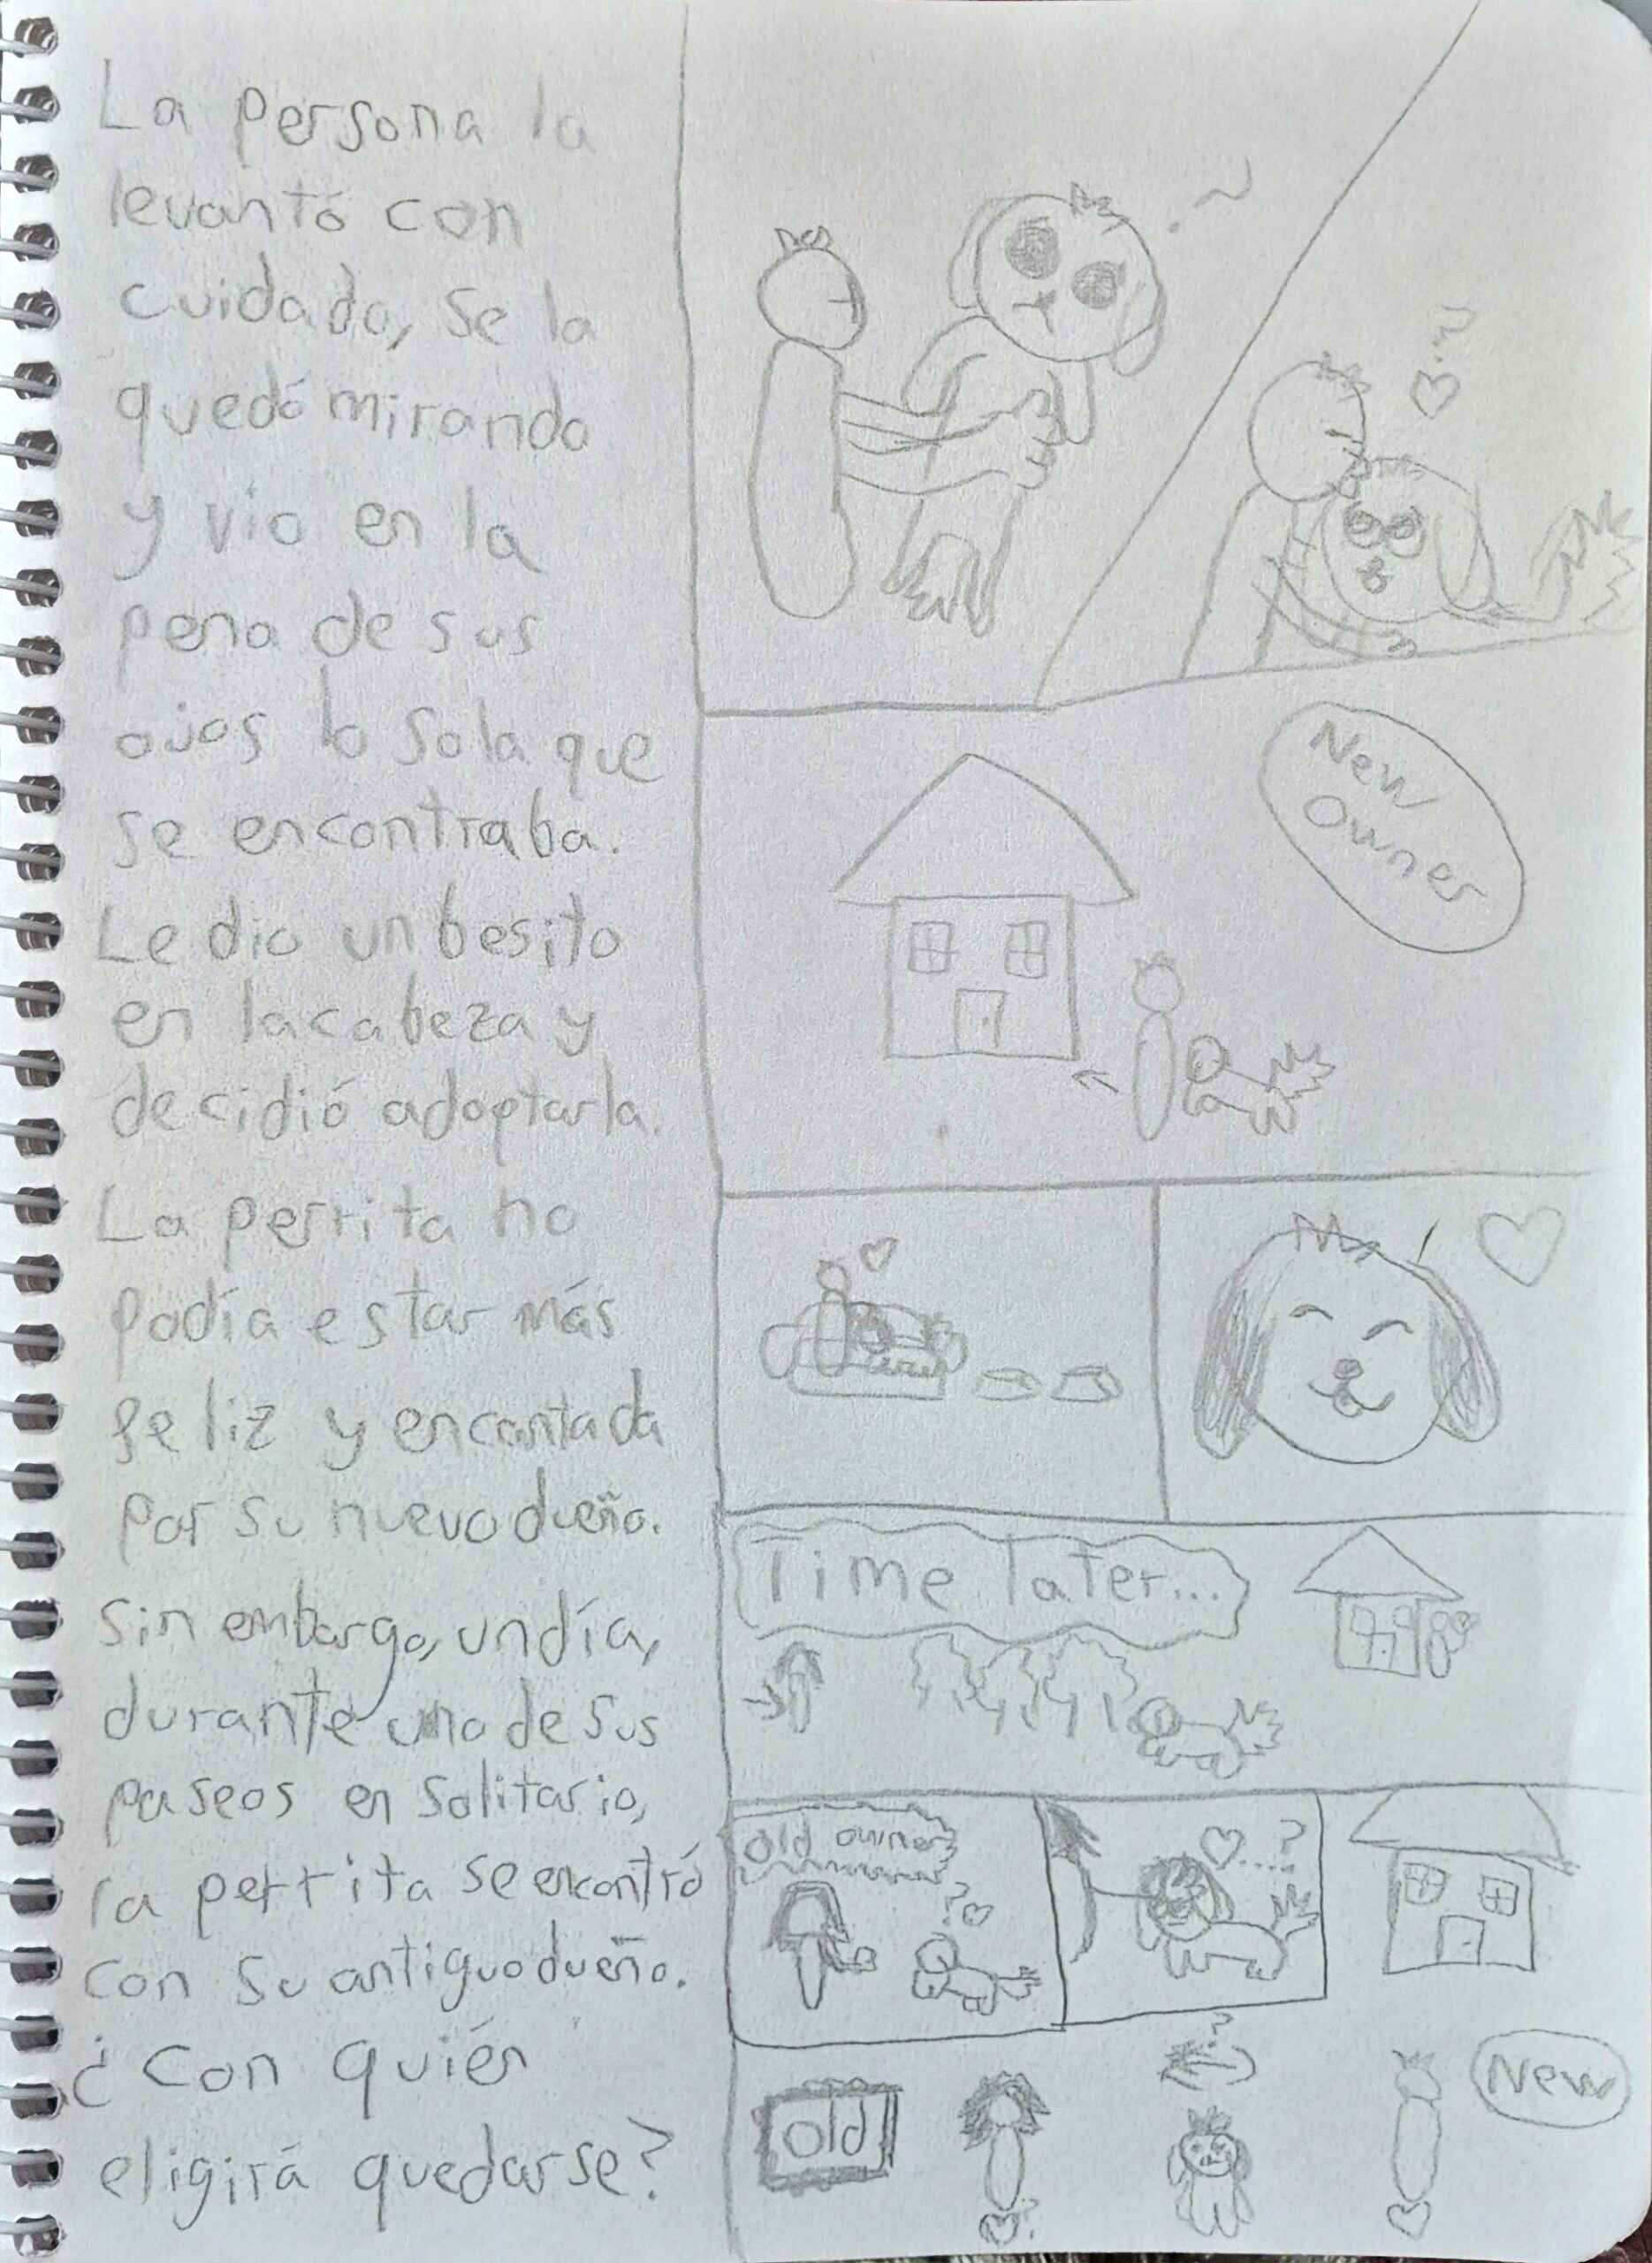 La persona la
levantó con
cuidado, se la
quedó mirando
y vio en la
pena de sus
ojos lo sola que
se encontraba.
Le dio un besito
en la cabeza y
decidió adoptarla.
La perrita no
podía estar más
feliz y encantada
por su nuevo dueño.
Sin embargo, un día,
durante uno de sus
paseos en solitario,
la perrita se encontró
con su antiguo dueño.
¿Con quién
eligirá quedarse?
?
New
Owner
Time later...
old owner
?
....?
?
old
New
?